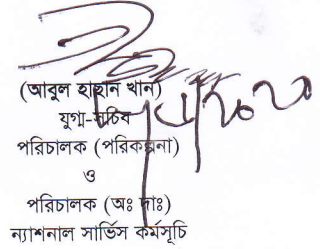 (আবুল হাছান খান)
যুগ্ম-সচিব
পরিচালক (পরিকল্পনা)
ও
পরিচালক (অঃ দাঃ)
ন্যাশনাল সার্ভিস কর্মসূচি